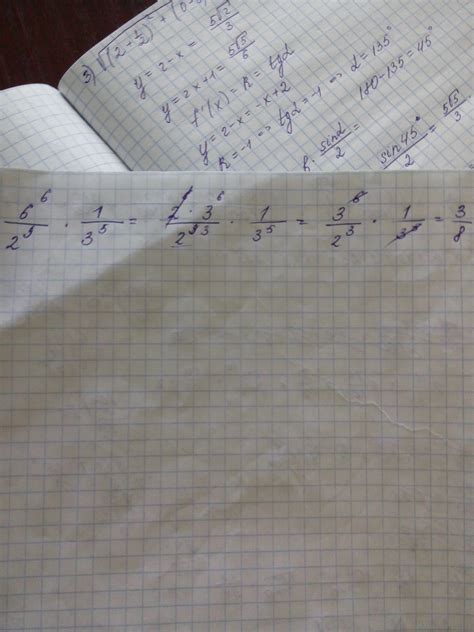 3) √((2-½)² + (0-
y = 2-x = 5√2/3
y = 2x+1 = 5√5/6
f'(x) = k = tgα
y = 2-x = -x+2
k = -1 => tgα = -1 => α = 135°
180-135 = 45°
R · sinα/2 = sin45°/2 = 5√5/3
6⁶/2⁵ · 1/3⁵ = 2⁶ · 3⁶/2⁹³ · 1/3⁵ = 3⁶/2³ · 1/3⁵ = 3/8